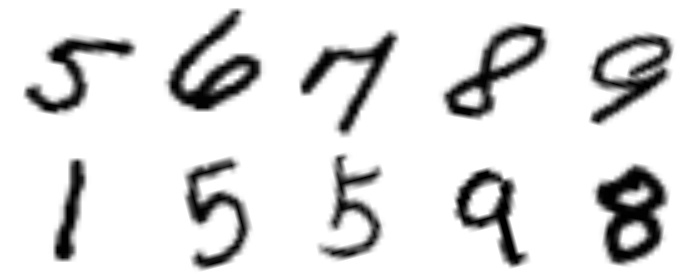 5 6 7 8 9
1 5 5 9 8